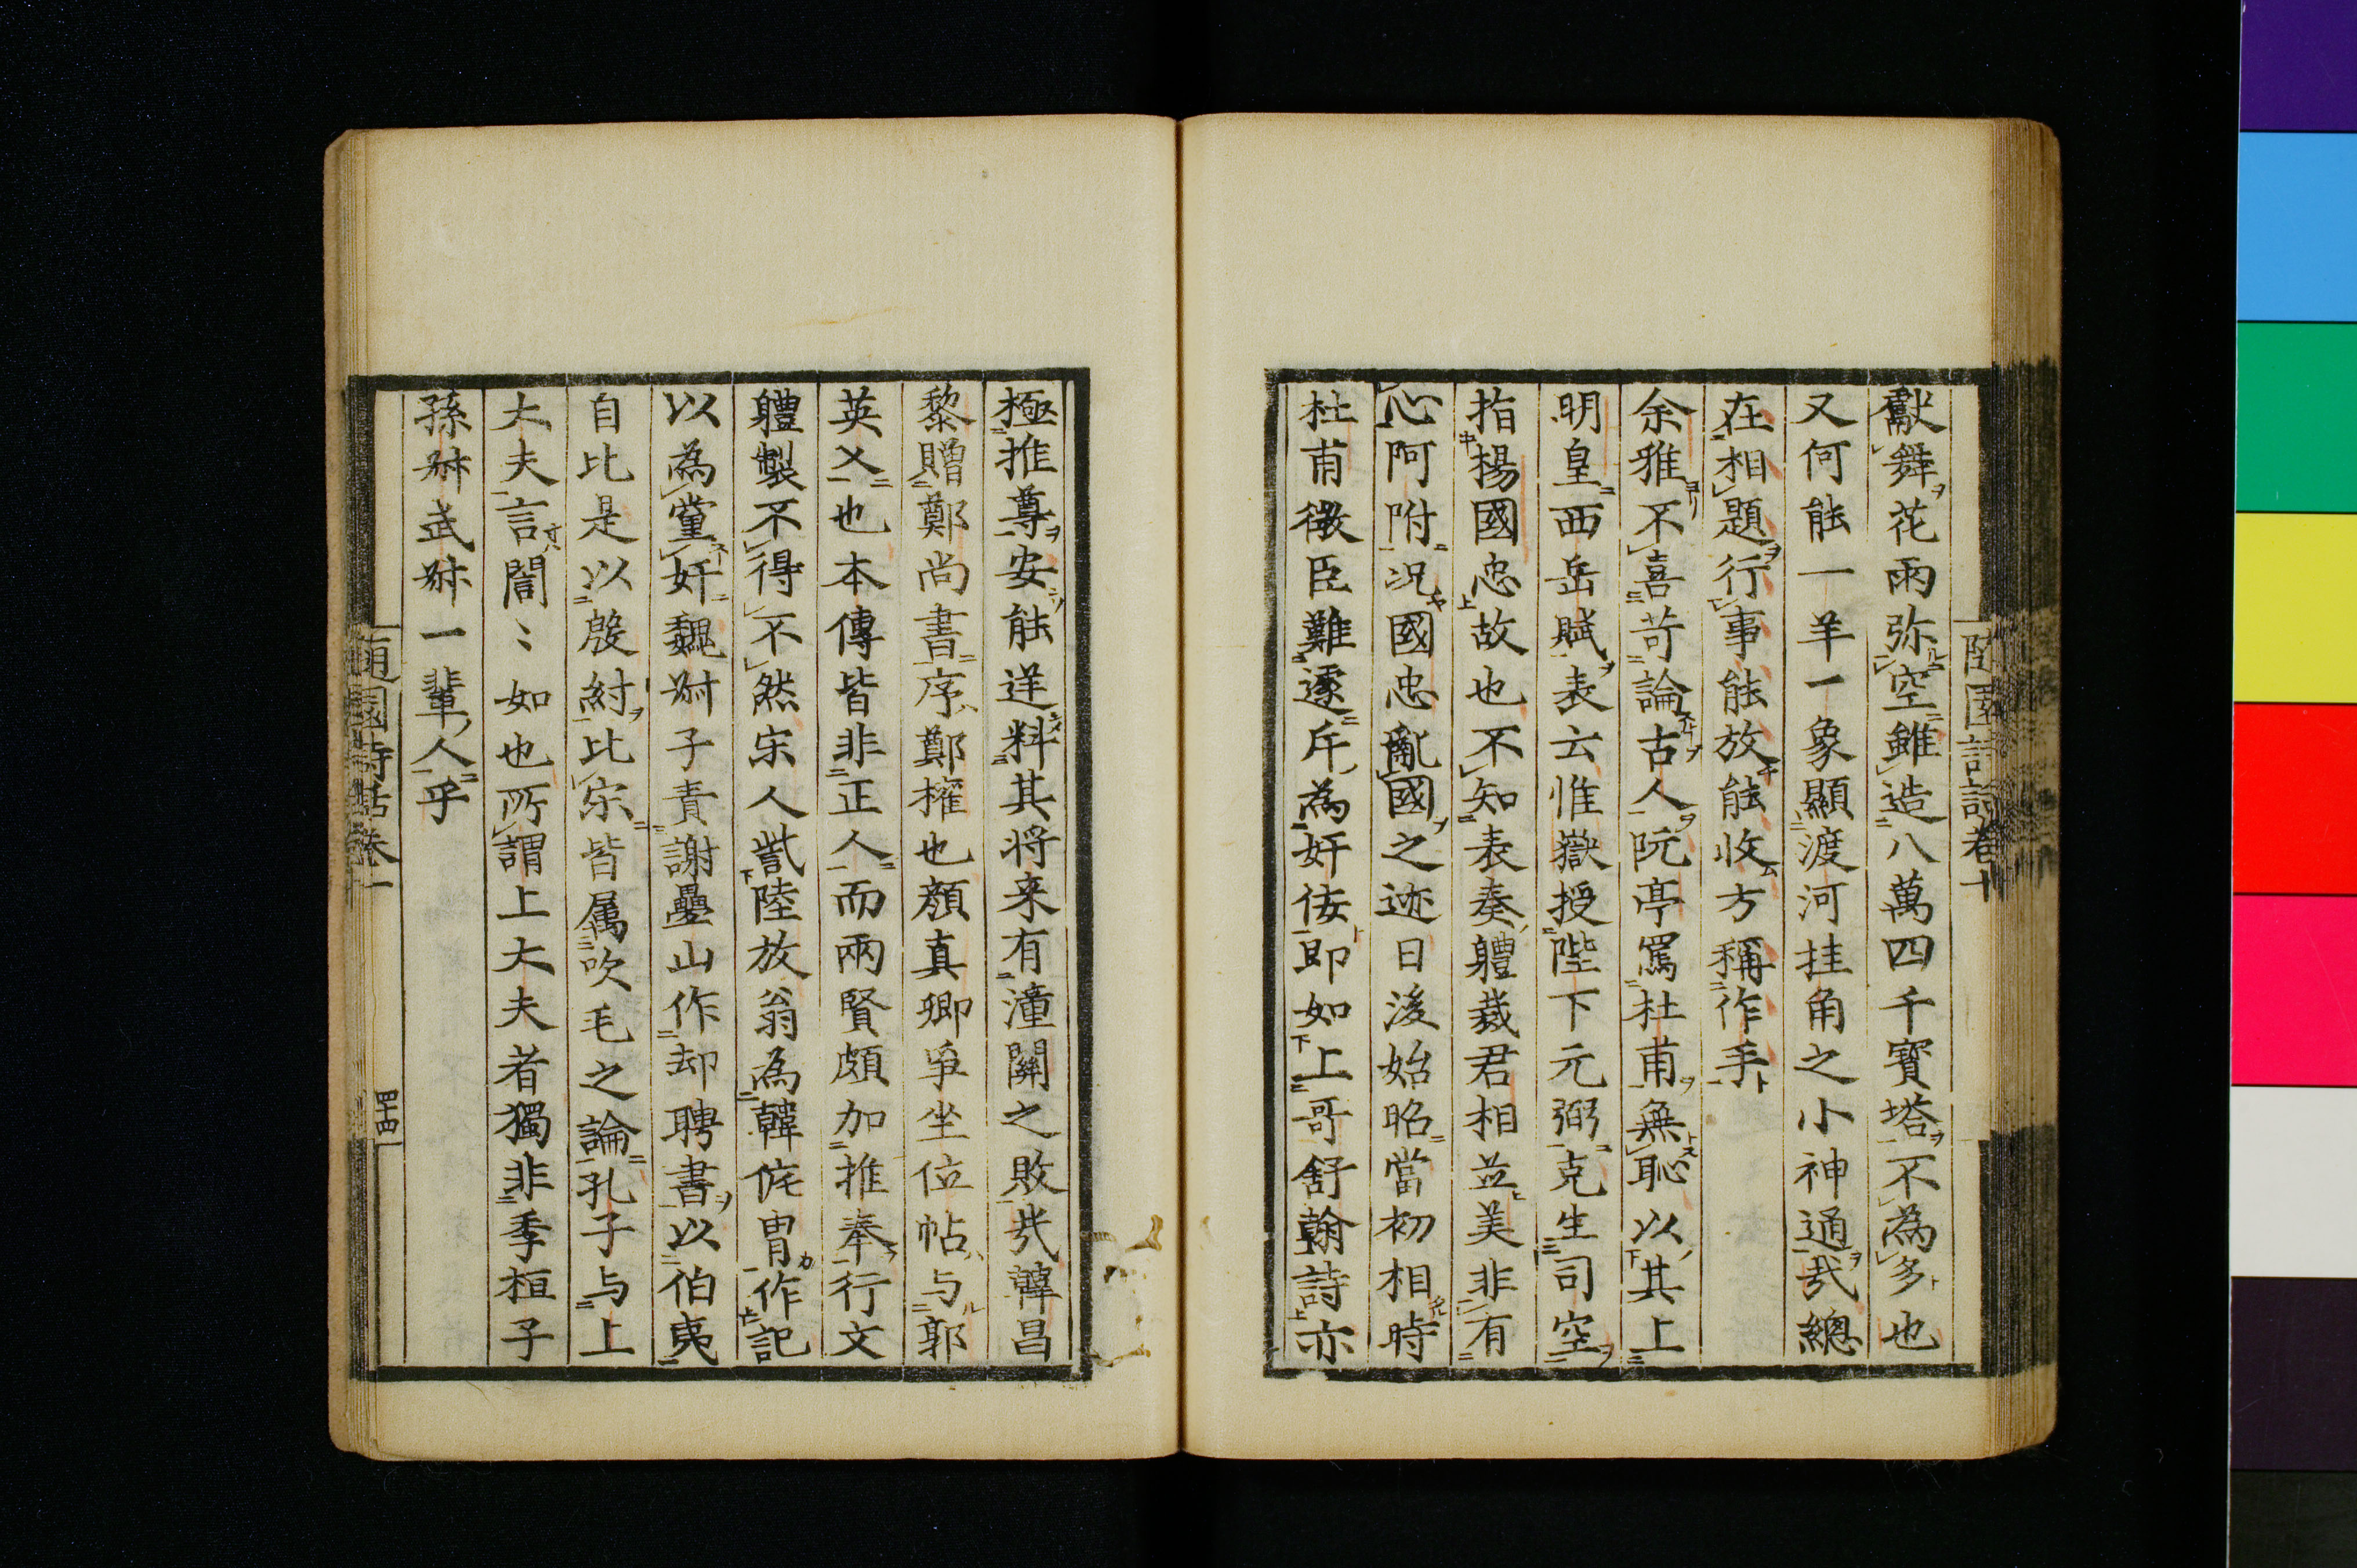 獻舞花兩弥空雖造八萬四千寶塔不為多也
又何能一羊一象顯渡河挂角之小神通哉總
在相題行事能放能收方稱作手
余雅不喜苛論古人阮亭罵杜甫無恥以其上
明皇西岳賦表云惟嶽授陛下元弼克生司空
指楊國忠故也不知表奏軆裁君相並美非有
心阿附況國忠亂國之迹日後始昭當初相時
杜甫微臣難遽斥為奸佞即如上哥舒翰詩亦
極推尊安能逆料其将来有潼關之敗哉韓昌
黎贈鄭尚書序鄭權也顏真卿爭坐位帖与郭
英乂也本傳皆非正人而兩賢頗加推奉行文
軆製不得不然宋人訾陸放翁為韓侂胄作記
以為黨奸魏尌子責謝疊山作却聘書以伯夷
自比是以殷紂比宋皆属吹毛之論孔子与上
大夫言誾〻如也所謂上大夫者獨非季桓子
孫尗武尗一輩人乎
隨園詩話卷一
四十四